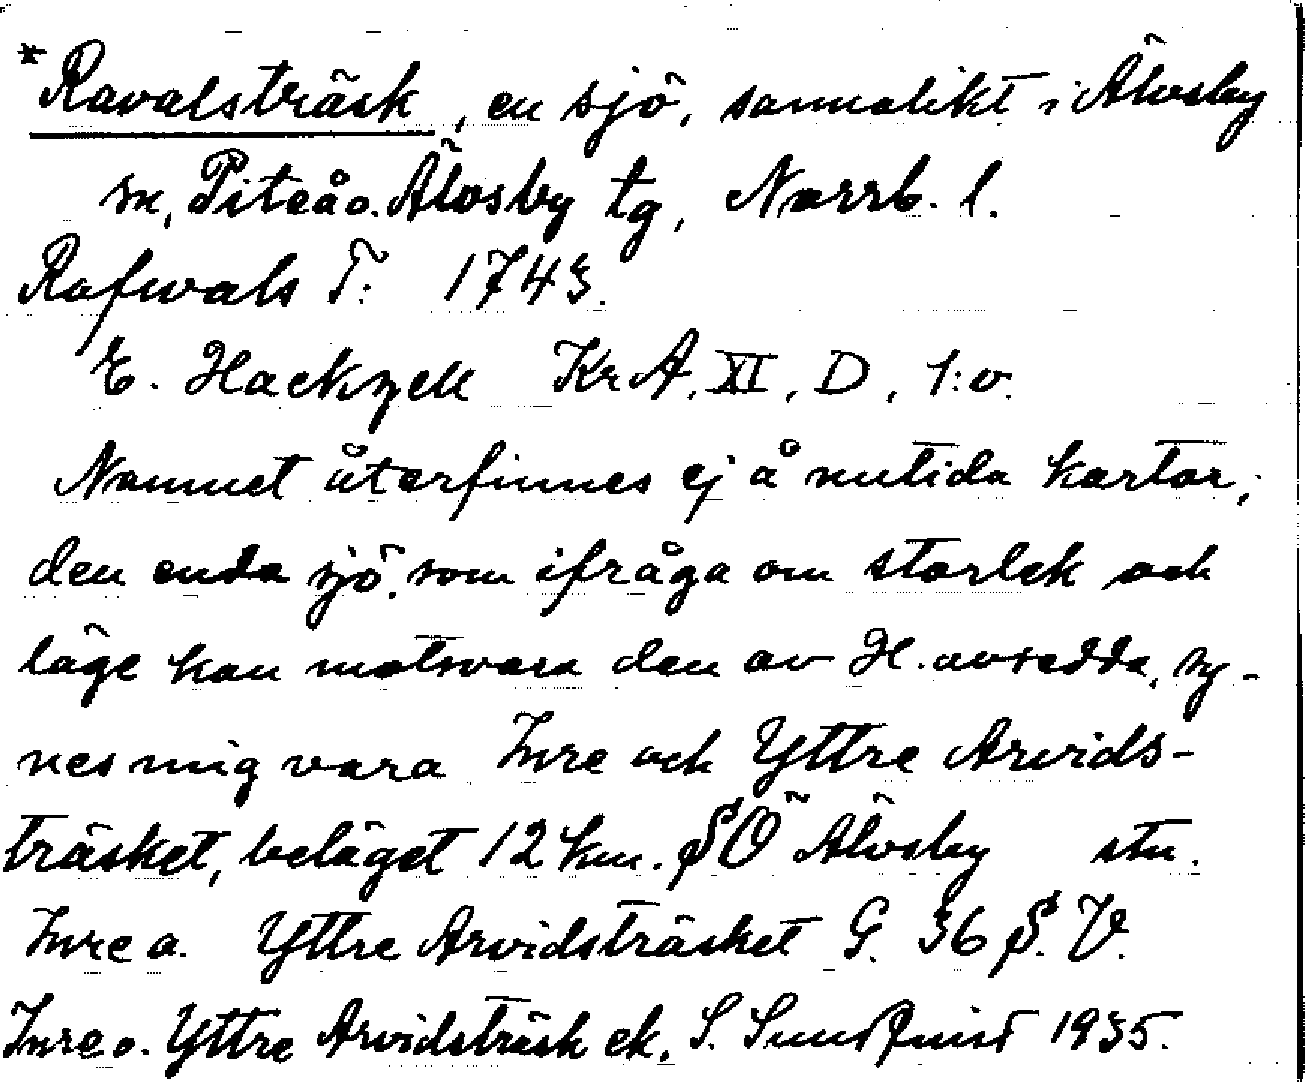 *Ravalsträsk, en sjö, sannolikt i Älvsby
sn, Piteå o. Älvsby tg, Norrb. l.
Rafwals T: 1743.
E. Hackzell KrA, XI, D, 1:o.
Namnet återfinnes ej å nutida kartor,
den enda sjö, som ifråga om storlek och
läge kan motsvara den av H. avsedda, sy-
nes mig vara Inre och Yttre Arvids-
träsket, beläget 12 km. SÖ Älvsby stn.
Inre o. Yttre Arvidsträsket G. 36 S. V.
Inre o. Yttre Arvidsträsk ek. S. Sundquist 1935.